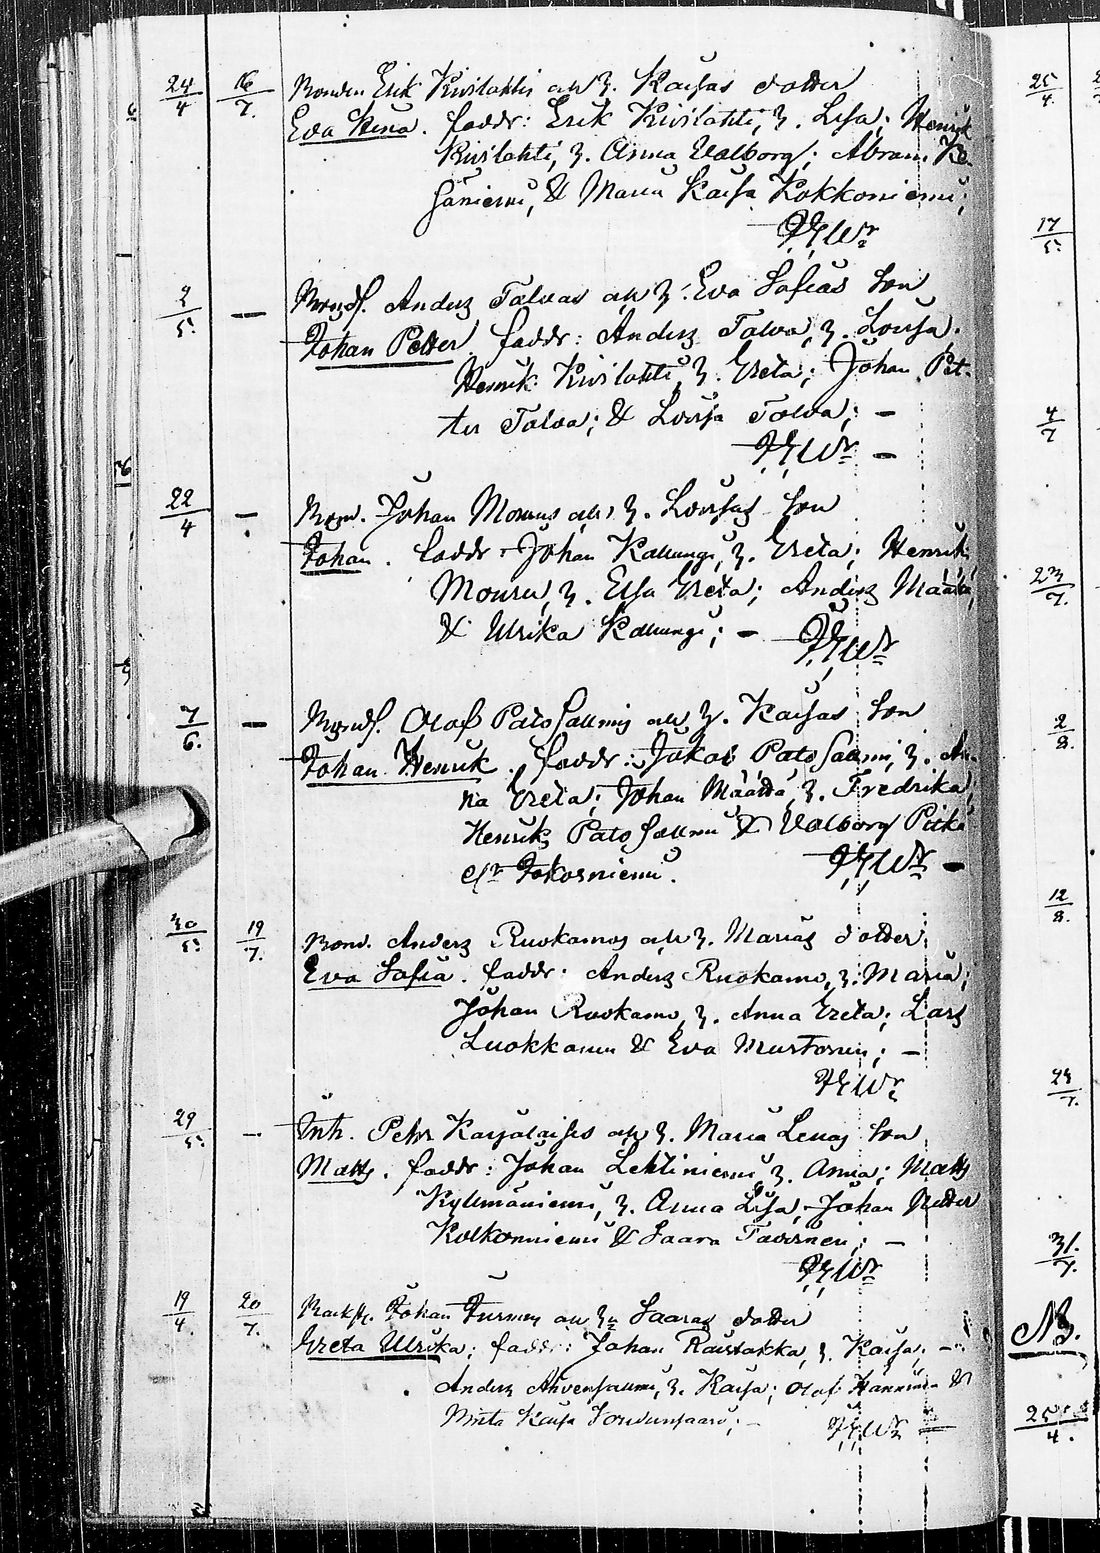 24/4 16/7. Bonden Erik Kivilahtis och h. Kaisas dotter
Eva Stina. faddr: Erik Kivilahti, h. Lisa; Henrik
Kivilahti, h. Anna Valborg; Abram
säniemi, & Maria Kaisa Kokkoniemi;
2/5. — Anders Talvas och h. Eva Sofias son
Johan Petter faddr: Anders Talva, h. Lovisa.
Henrik Kivilahti, h. Greta; Johan Pet-
ter Talva; & Lovisa Talva; —
22/4 — Johan Mourus och h. Lovisas son
Johan. faddr Johan Kallungi, h. Greta; Henrik
Mouru, h. Elsa Greta; Anders Määttä,
& Ulrika Kallungi; —
7/6. — Olof Patosalmis och h. Kaisas son
Johan Henrik. faddr: Jakob Patosalmi, h. An-
na Greta; Johan Määttä, h. Fredrika;
Henrik Patosalmi & Valborg Pitkä
30/5. 19/7. Bond. Anders Ruokamos och h. Marias dotter
Eva Sofia. faddr: Anders Ruokamo, h. Maria;
Johan Ruokamo, h. Anna Greta; Lars
Luokkanen & Eva Mustonen; —
29/5. — Inh. Petr Karjalaises och h. Maria Lenas son
Matts. faddr: Johan Lehtiniemi, h. Anna; Matts
Kyllmäniemi, h. Anna Lisa, Johan
Kokkoniemi & Saara Tavinen; —
19/4. 20/7. Johan och h. Saaras dotter
Greta Ulrika; faddr: Johan Raistakka, h. Kaisa; —
Anders Ahvensalmi, h. Kaisa; Olof Hänninen &
Kaisa
25/4.
17/5.
4/7
23/7.
2/8.
12/8.
31/7.
NB.
25/4.